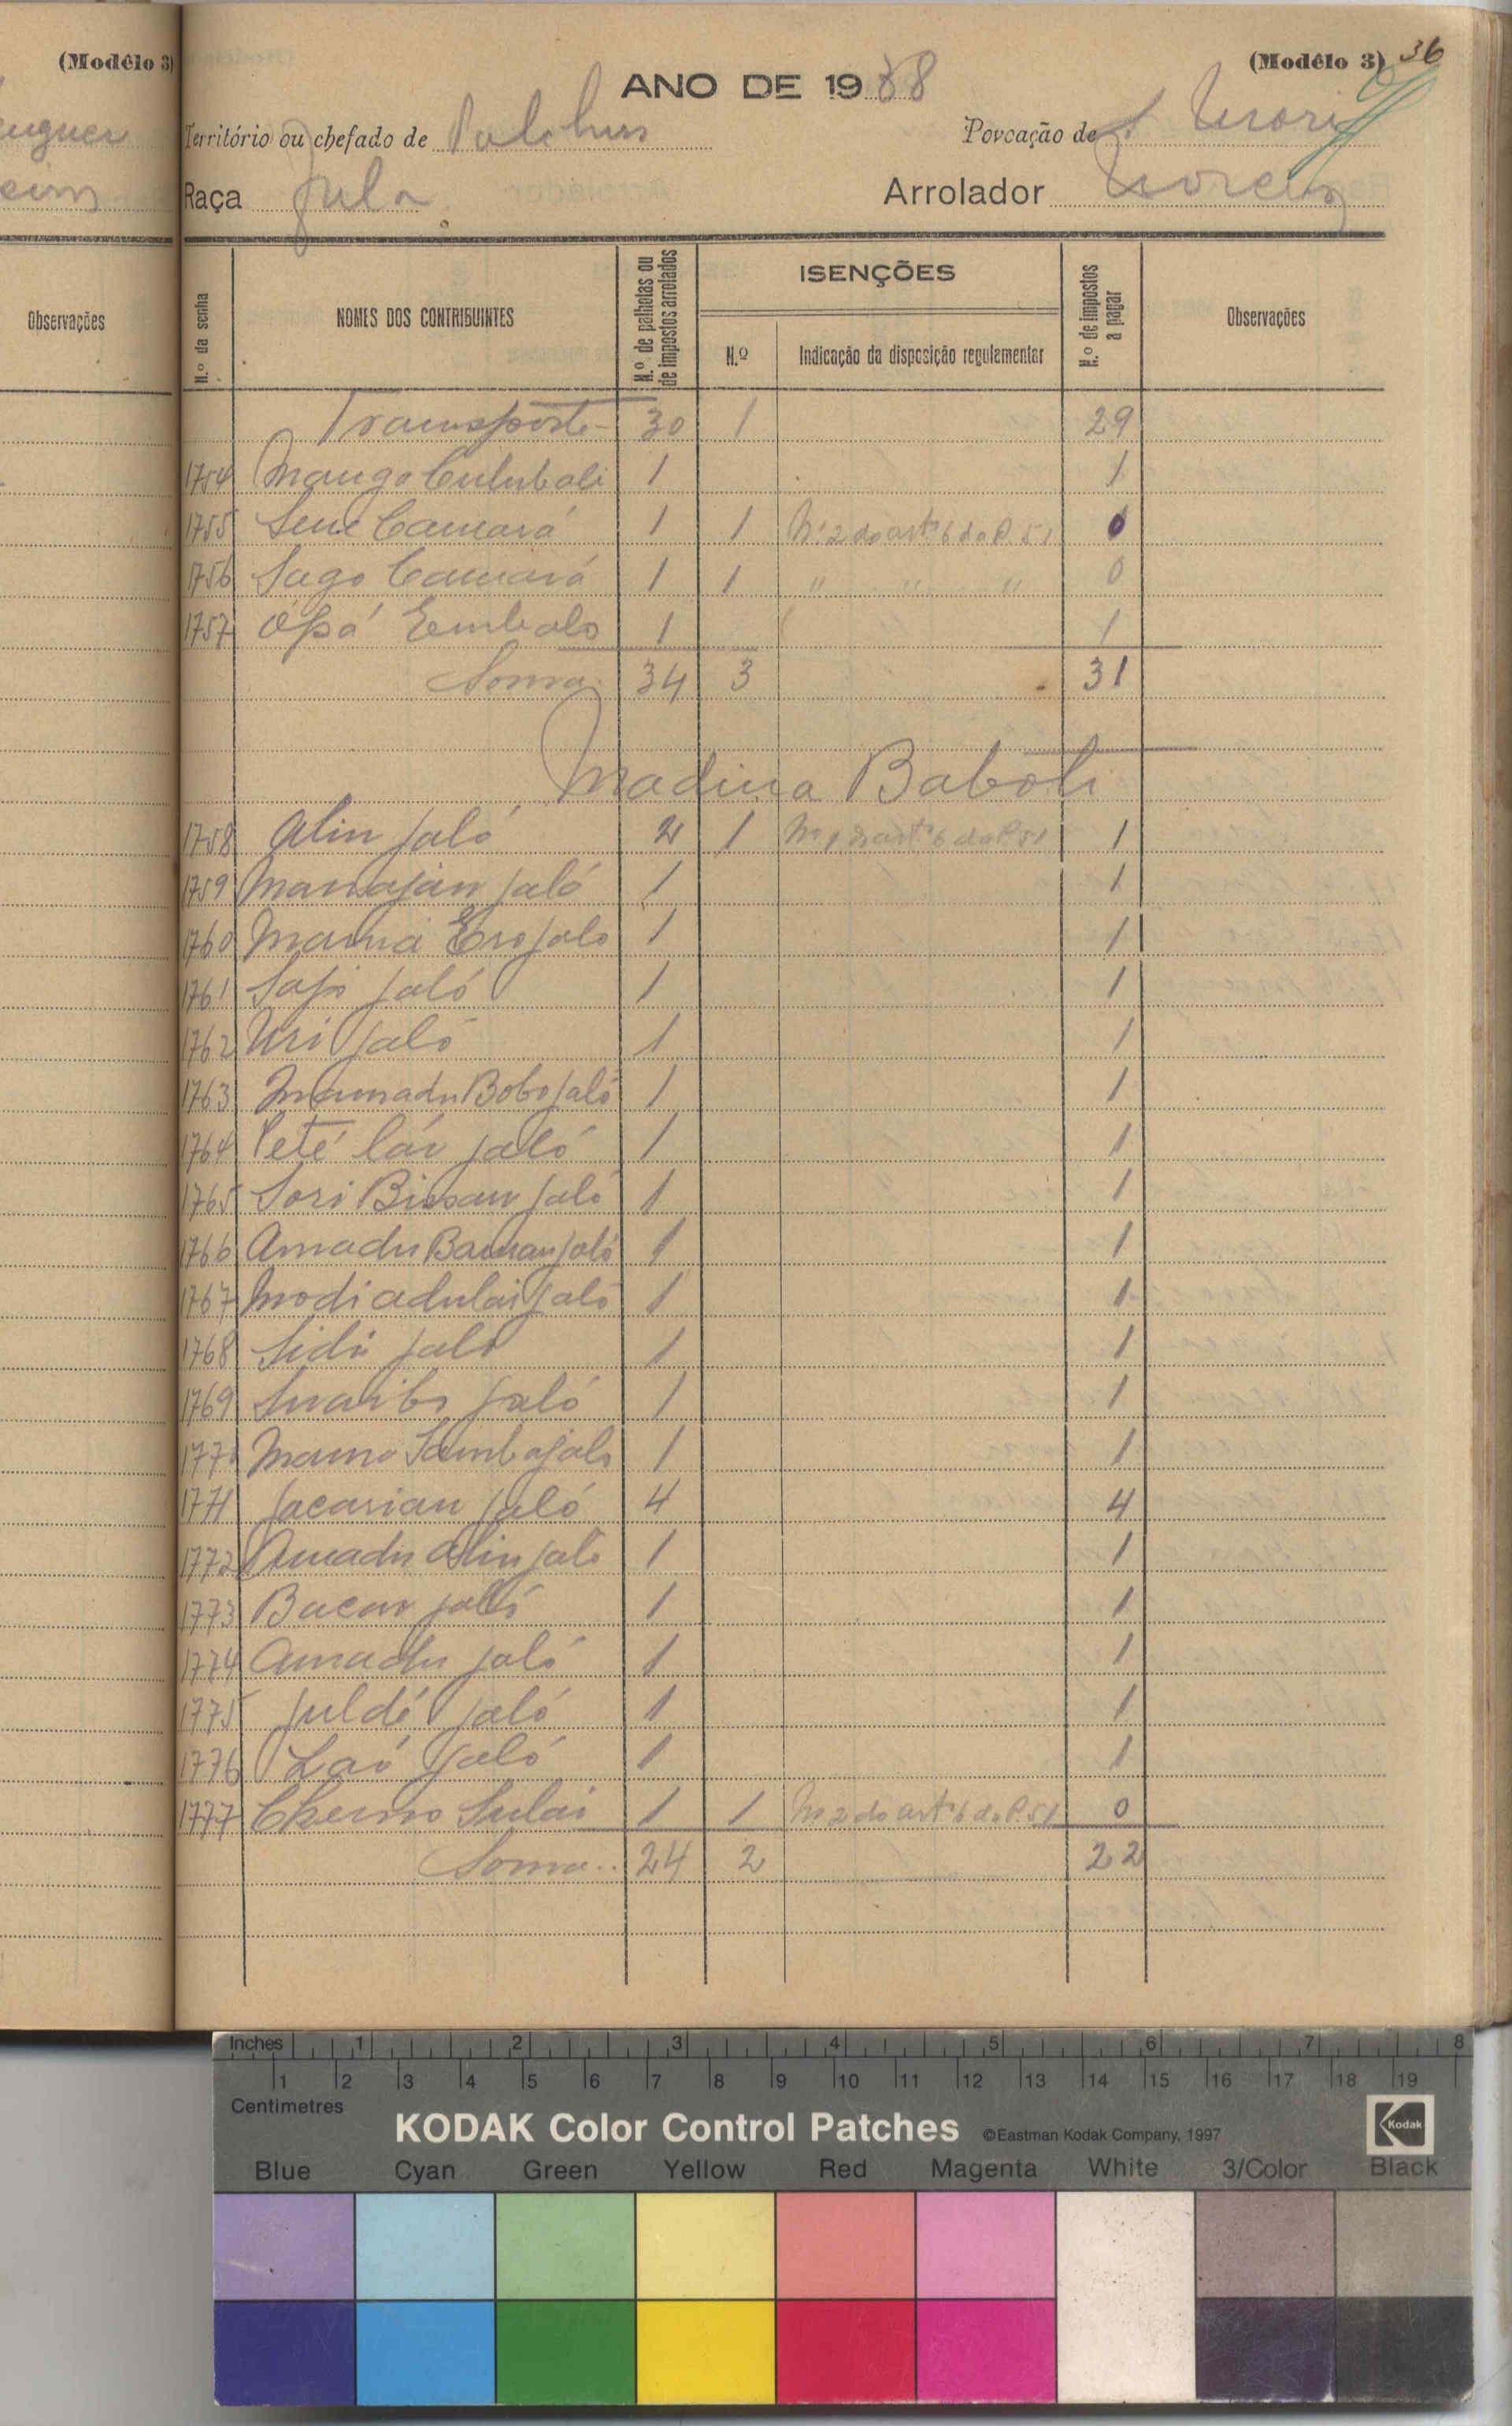 (Modêlo 3)
Observações
(Modêlo 3) 36
ANO DE 1938
Território ou chefado de
Povoação de
Raça Fula Arrolador
N.º da senha
NOMES DOS CONTRIBUINTES
N.º de palhotas ou de impostos arrolados
ISENÇÕES
N.º
Indicação da disposição regulamentar
N.º de impostos a pagar
Observações
Transporte 30 1 29
1754 Mango Culubali 1 1
1755 Sene Camará 1 1 Nº 2 do artº 6 do P. 51 0
1756 Sago Camará 1 1 " " " 0
1757 Embalo 1 1
Soma 34 3 31
Madina Baboli
1758 Alin Jaló 2 1 Nº 1 do artº 6 do P. 51 1
1759 Manajan Jaló 1 1
1760 Mamá Jalo 1 1
1761 Jaló 1 1
1762 Uri Jaló 1 1
1763 Mamadu Bobo Jaló 1 1
1764 Peté Jaló 1 1
1765 Sori Bissan Jaló 1 1
1766 Amadu Jaló 1 1
1767 Modi adulai Jaló 1 1
1768 Sidi Jaló 1 1
1769 Suaibo Jaló 1 1
1770 Mamo Samba Jalo 1 1
1771 Jacarian Jaló 4 4
1772 Amadu Alin Jaló 1 1
1773 Bacar Jaló 1 1
1774 Amadu Jaló 1 1
1775 Juldé Jaló 1 1
1776 Laó Jaló 1 1
1777 Cherno Sulai 1 1 Nº 2 do artº 6 do P. 51 0
Soma.. 24 2 22
Inches 1 2 3 4 5 6 7 8
1 2 3 4 5 6 7 8 9 10 11 12 13 14 15 16 17 18 19
Centimetres
KODAK Color Control Patches ©Eastman Kodak Company, 1997 Kodak
Blue Cyan Green Yellow Red Magenta White 3/Color Black